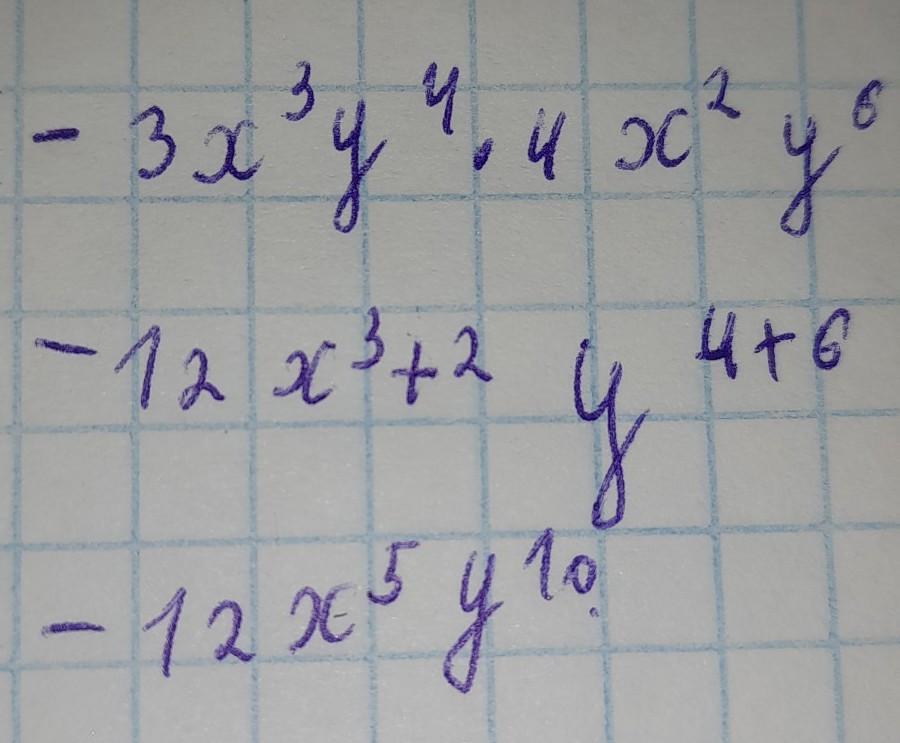 - 3x³y⁴ · 4x²y⁶
- 12x³⁺²y⁴⁺⁶
- 12x⁵y¹⁰.